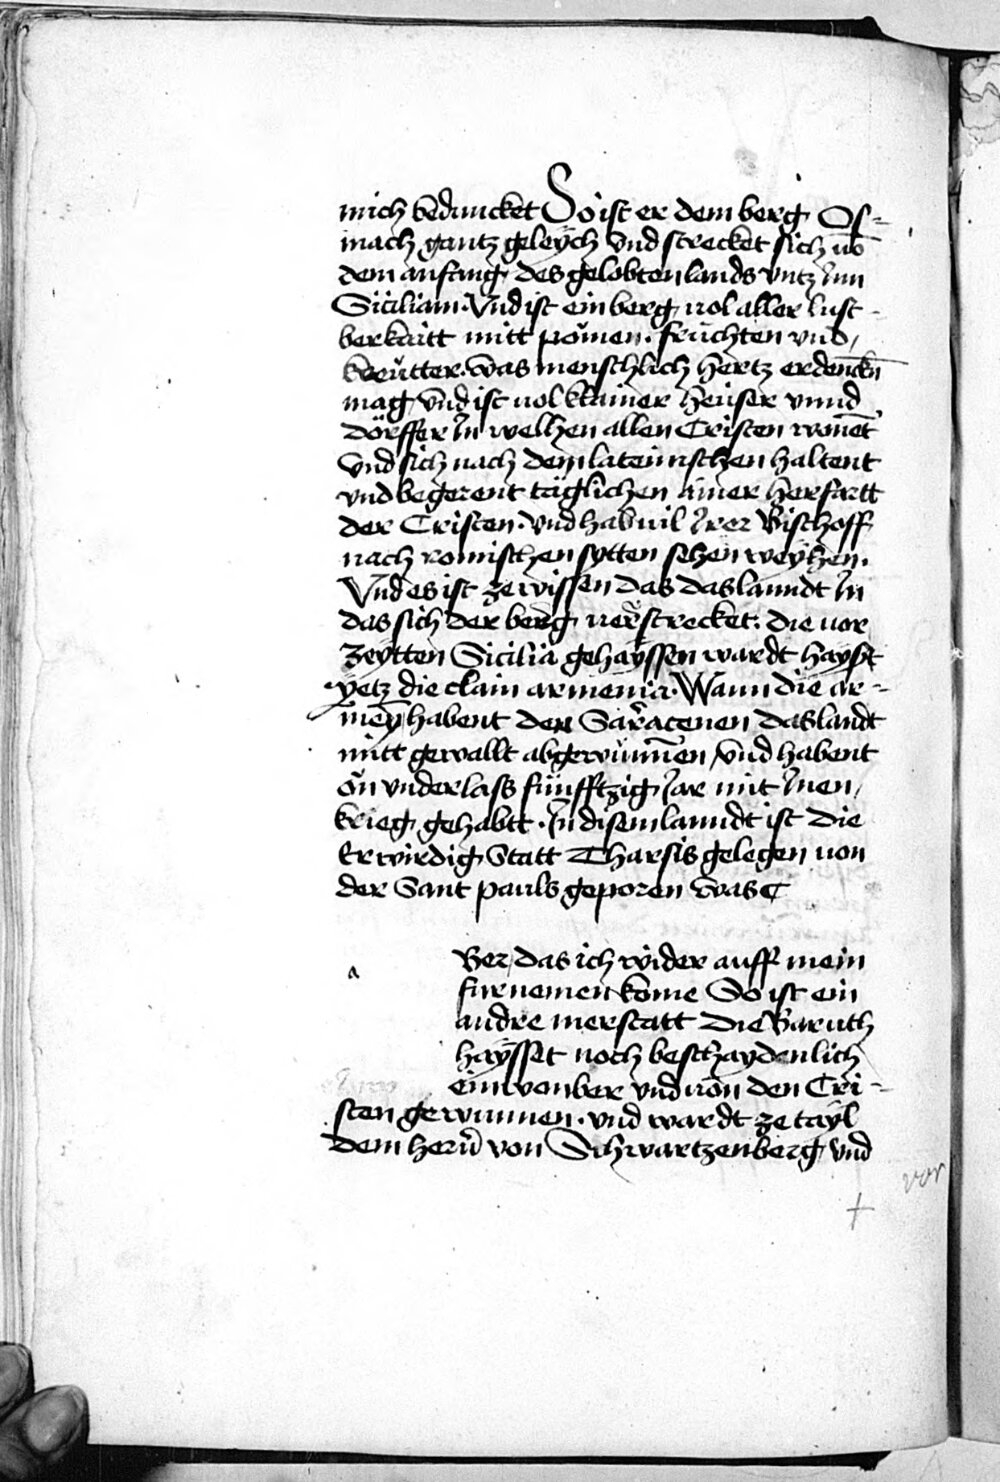 mich beduncket So ist er dem berg Of-
mach gantz geleych vnd strecket sich vo
dem anfang des gelobten lands vntz Inn
Siciliam. Vnd ist ein berg uol aller lust-
berkaitt mitt pömen. früchten vnd
kreütter. was menschlich hertz erdencken
mag vnd ist uol klainer heüser vnnd
dörffer In welhen allen Cristen wonet
vnd sich nach dem lateinischen haltent
vnd begerent täglichen ainer herfartt
der Cristen. vnd hab uil Irer Bischoff
nach romischen sytten sehen weyhen.
Vnd es ist ze wissen das das lanndt In
das sich der berg uerstrecket. die uor
zeytten Sicilia gehayssen wardt haysst
yetz die clain armenia. Wann die ar-
meny habent den Sarracenen das landt
mitt gewallt abgewunnen, vnd habent
on vnderlass fünfftzig Jar mit Inen
krieg gehabtt. In disem lanndt ist die
Erwirdig Statt Tharsis gelegen uon
der Sant pauls geporen was
a
Ber, das ich wider auff mein
furnemen kome So ist ein
andre merstatt Die Baruth
haysset noch beschaydenlich
ein wonber vnd uon den Cri-
sten gewunnen. vnd wardt ze tayl
dem herrn von Schwartzenberg vnd
vor